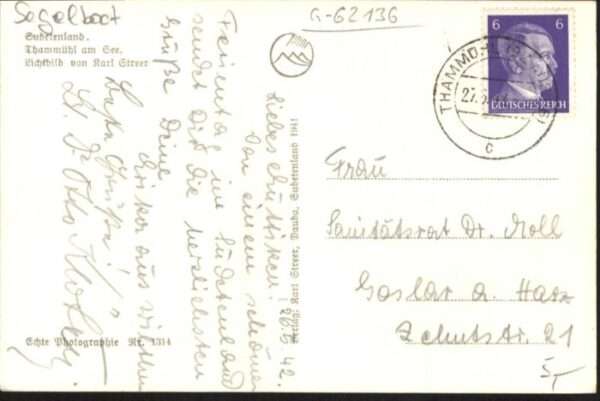 Segelboot
G-62136
Sudetenland.
Thammühl am See.
Lichtbild von Karl Streer
Liebes Muttiken! 26.7.42.
Von einem schönen
Ferientag im Sudetenland
sendet Dir die herzlichsten
Grüße Deine
aus
Beste Grüße!
Dr. Otto
Verlag: Karl Streer, Dauba, Sudetenland 1941
Echte Photographie Nr. 1314
6 6
DEUTSCHES REICH
THAMM
27.
c
Frau
Sanitätsrat Dr. Moll
Goslar a. Harz
21